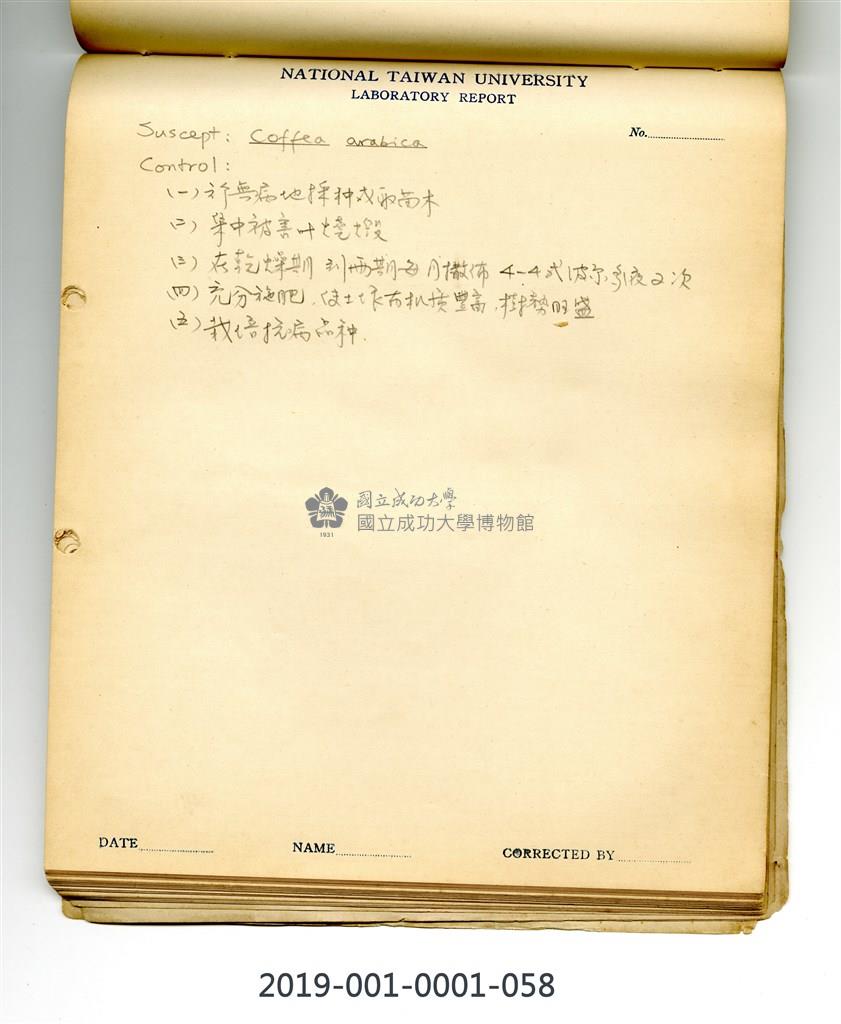 NATIONAL TAIWAN UNIVERSITY
LABORATORY REPORT
No.
Suscept: Coffea arabica
Control:
(一) 於無病地採种或取苗木
(二) 集中被害叶燒燬
(三) 在乾燥期到雨期每月撒佈 4-4式波尔多液2次
(四) 充分施肥,使土壤有机质豐高,樹勢旺盛
(五) 栽培抗病品种.
1931
國立成功大學
國立成功大學博物館
DATE
NAME
CORRECTED BY
2019-001-0001-058